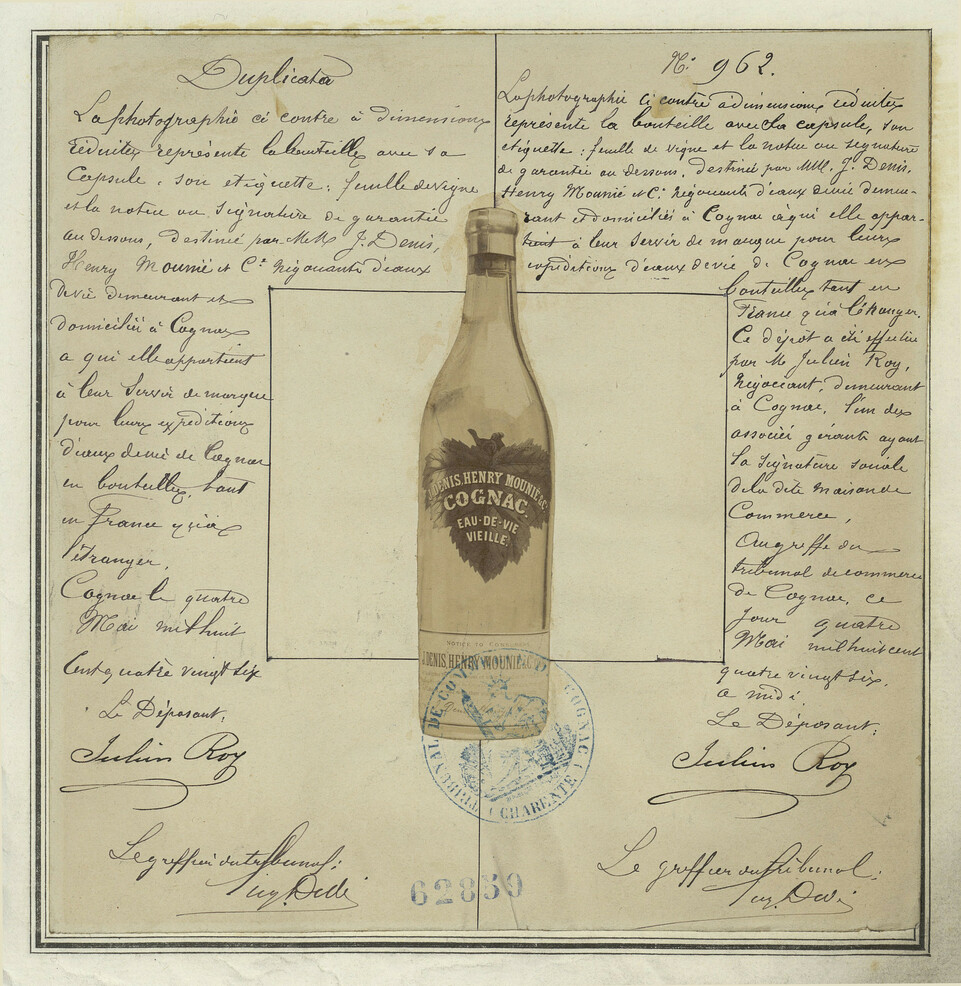 Duplicata
La photographie ci contre à dimensions
réduites représente la bouteille avec sa
Capsule, son etiquette: feuille de vigne
et la notice ou signature de garantie
au dessous, destiné par MM J. Denis,
Henry Mounié et Cie Négociants d'eaux
de vie demeurant et
domiciliés à Cognac
a qui elle appartient
à leur Servir de marque
pour leurs expéditions
d'eaux de vie de Cognac
en bouteilles, tant
en France qu'à
l'étranger.
Cognac le quatre
Mai mil huit
Cent quatre vingt six
Le Déposant,
Julien Roy
Le greffier du tribunal:
N° 962.
La photographie ci contre à dimensions réduites
représente la bouteille avec la capsule, son
etiquette: feuille de vigne et la notice ou signature
de garantie au dessous, destiné par MM. J. Denis,
Henry Mounié et Cie Négociants d'eaux de vie demeu-
rant et domiciliés à Cognac à qui elle appar-
tient à leur servir de marque pour leurs
expéditions d'eaux de vie de Cognac en
bouteilles tant en
France qu'à l'étranger.
Ce dépôt a été effectué
par M. Julien Roy,
Négociant, demeurant
à Cognac, l'un des
associés gérants ayant
la signature sociale
de la dite maison de
Commerce,
Au greffe du
tribunal de commerce
de Cognac, ce
jour quatre
Mai mil huit cent
quatre vingt six,
a midi
Le Déposant:
Julien Roy
Le greffier du tribunal:
J. DENIS, HENRY MOUNIÉ & Co
COGNAC.
EAU-DE-VIE
VIEILLE
NOTICE TO CONSUMERS
J. DENIS, HENRY MOUNIÉ & Co
TRIBUNAL DE COMMERCE DE COGNAC (CHARENTE)
62850